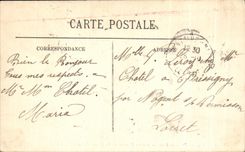 CARTE POSTALE
CORRESPONDANCE
ADRESSE
Bien le Bonjour
Tous mes respects a
Mr Mme Chatel
Maria
Mlle G. Leroy chez Mr
Chatel à
par Nogent sur Vernisson
Loiret